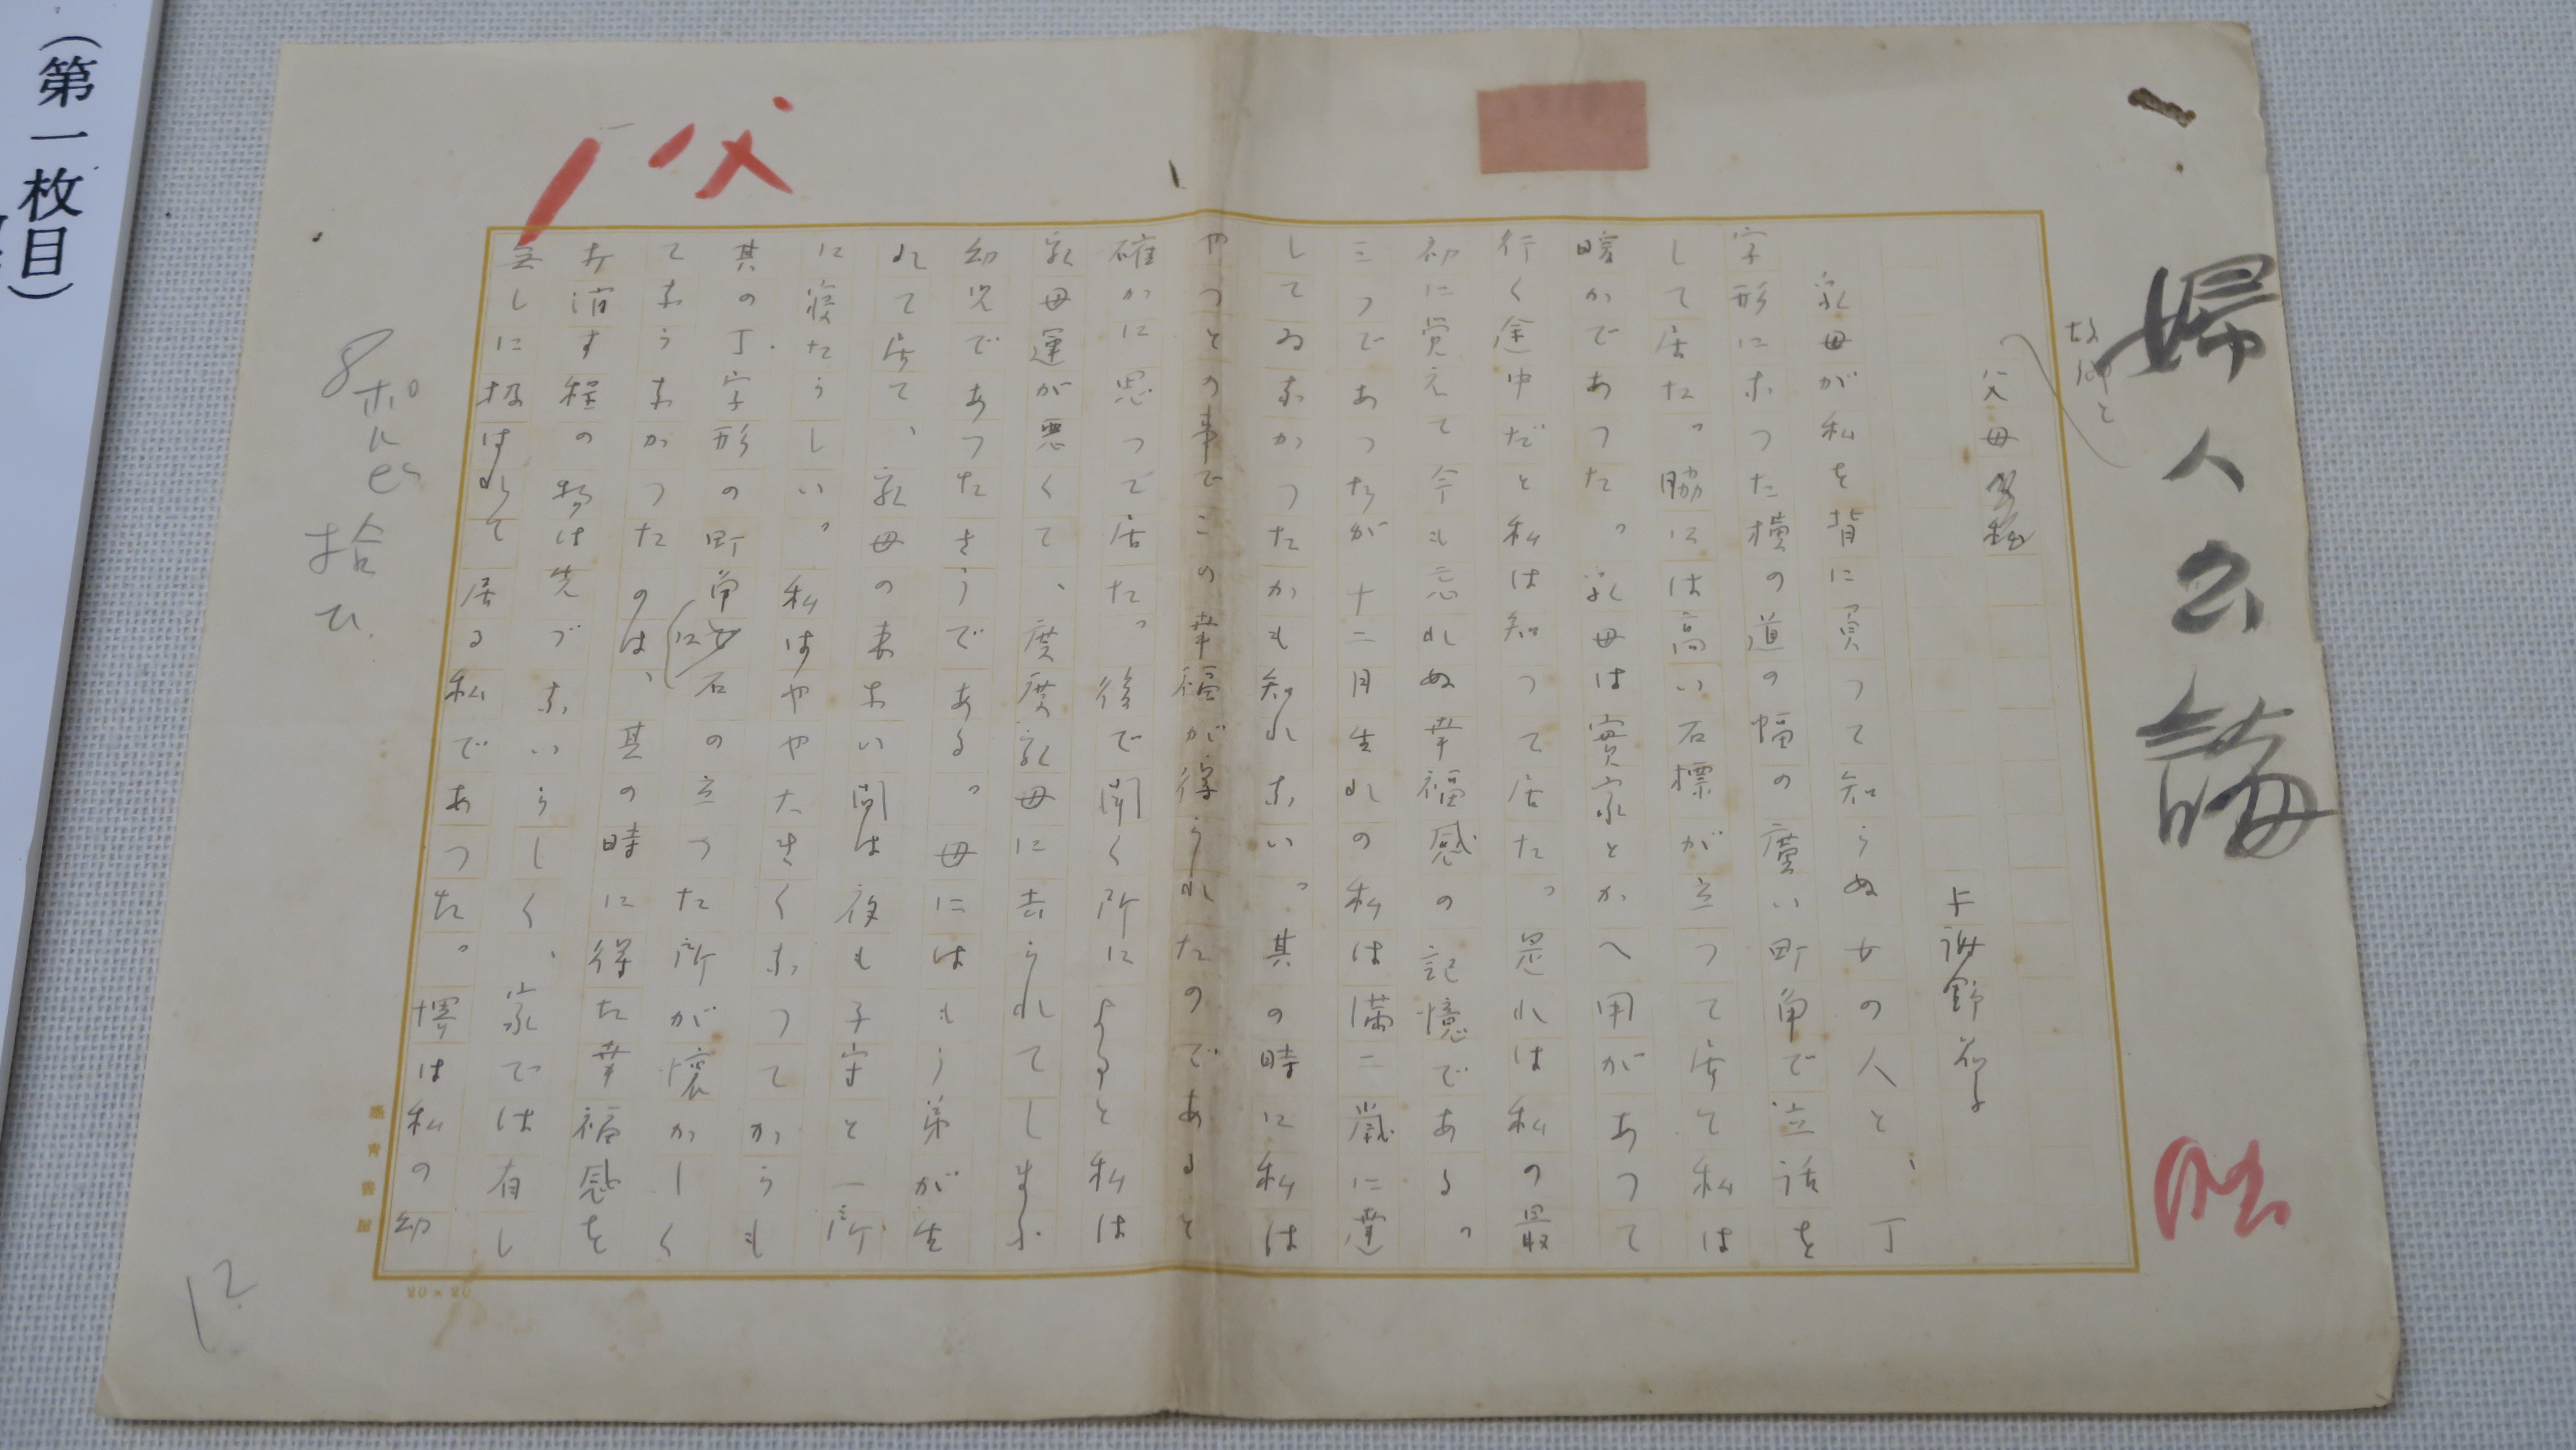 婦人公論
故郷と
父母
与謝野晶子
乳母が私を背に負つて知らぬ女の人と、丁
字形になつた横の道の幅の廣い町角で立話を
して居た。脇には高い石標が立つて居て私は
暖かであつた。乳母は實家とかへ用があつて
行く途中だと私は知つて居た。是れは私の最
初に覚えて今も忘れぬ幸福感の記憶である。
三つであつたが十二月生れの私は満二歳に達
してゐなかつたかも知れない。其の時に私は
やつとの事でこの幸福が得られたのであると
確かに思つて居た。後で聞く所によると私は
乳母運が悪くて、度度乳母に去られてしまふ
幼児であつたさうである。母にはもう弟が生
れて居て、乳母の来ない間は夜も子守と一所
に寝たらしい。私はやや大きくなつてからも
其の丁字形の町角に石の立つた所が懐かしく
てならなかつたのは、其の時に得た幸福感を
打消す程の物は先づないらしく、家では有し
無しに扱はれて居る私であつた。堺は私の幼
20×20
8ポ
拾ひ
12
（第一枚目）